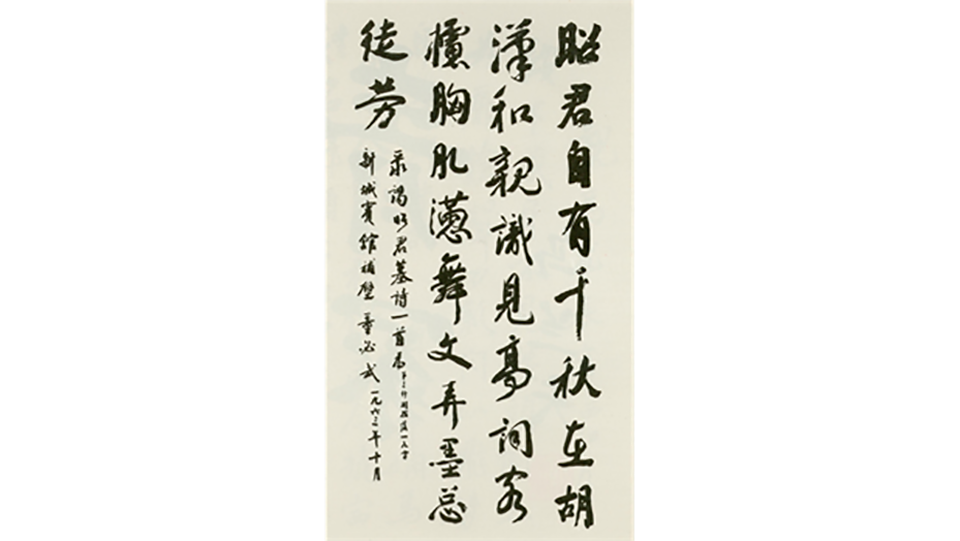 昭君自有千秋在胡
漢和親識見高詞客
攄胸肊懣舞文弄墨总
徒劳
录謁昭君墓詩一首為
新城賓館補壁 董必武 一九六三年十月